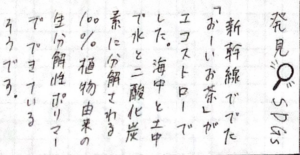 発見 SDGs
新幹線ででた
「おーいお茶」が
エコストローで
した。海中と土中
で水と二酸化炭
素に分解される
100%植物由来の
生分解性ポリマー
でできている
そうです。